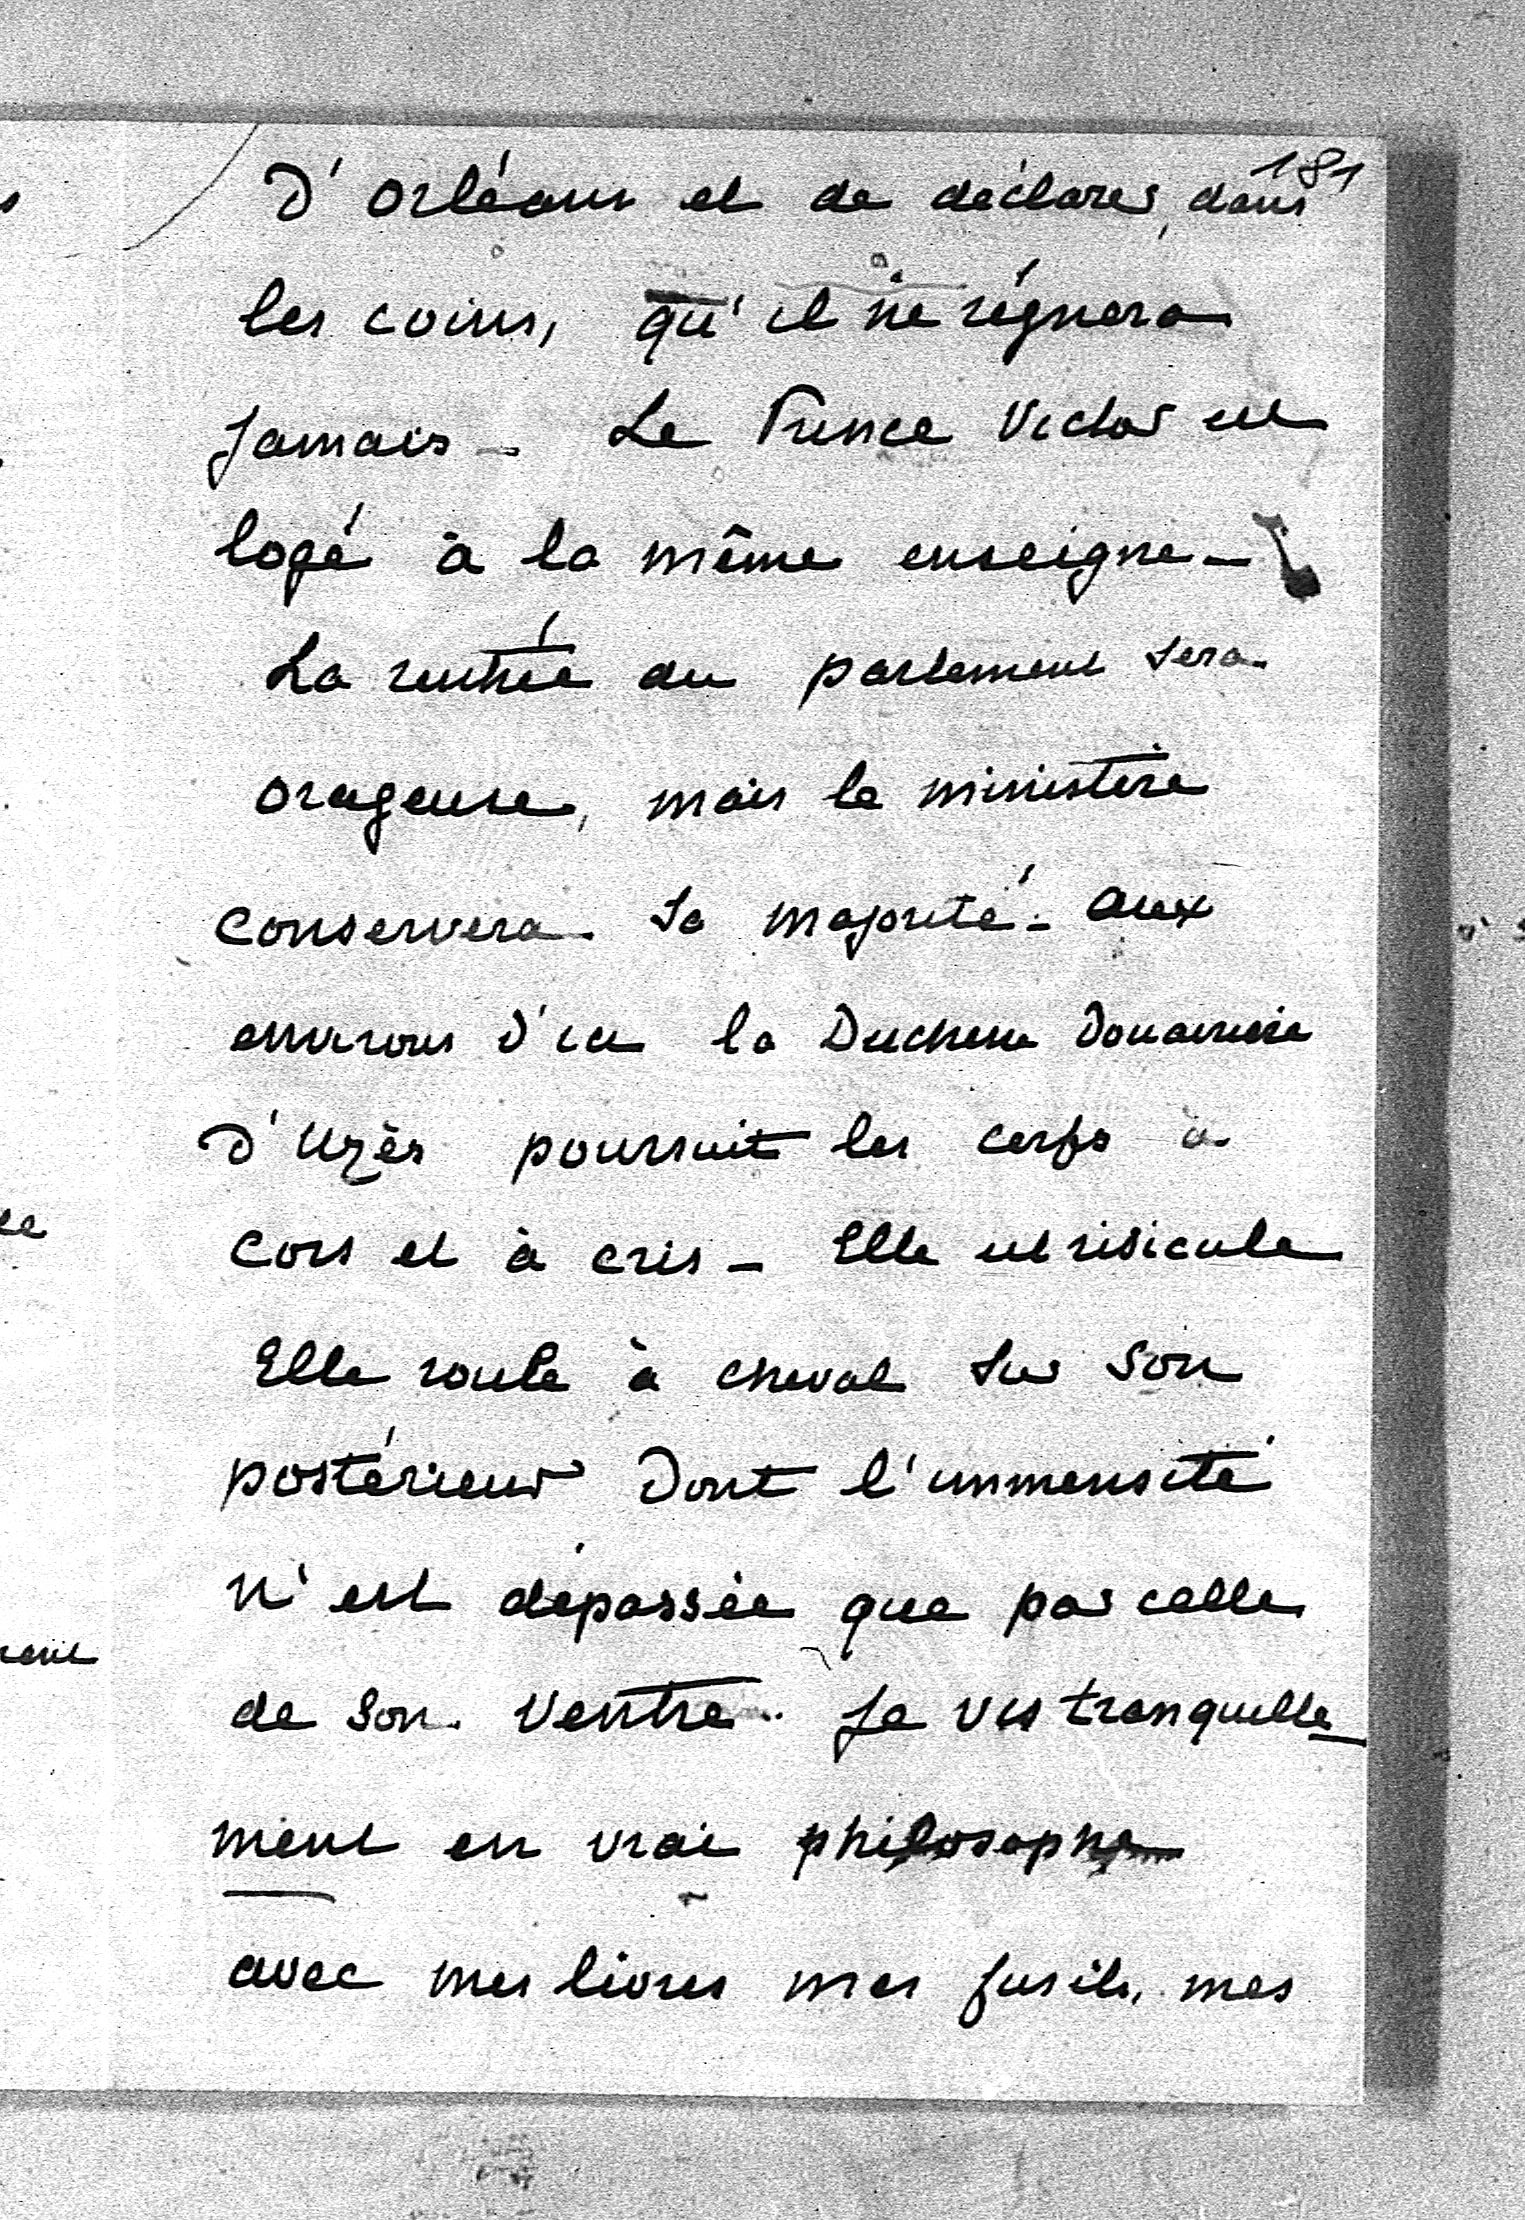 181
D'Orléans et de déclarer, dans
les coins, qu'il ne régnera
jamais - Le Prince Victor est
logé à la même enseigne -
La rentrée du parlement sera
orageuse, mais le ministère
conservera sa majorité - aux
environs d'ici la Duchesse Douairière
D'Uzès poursuit les cerfs à
cors et à cris - Elle est ridicule
Elle roule à cheval sur son
postérieur Dont l'immensité
n'est dépassée que par celle
de son ventre. Je vis tranquille
ment en vrai philosophe
avec mes livres mes fusils, mes